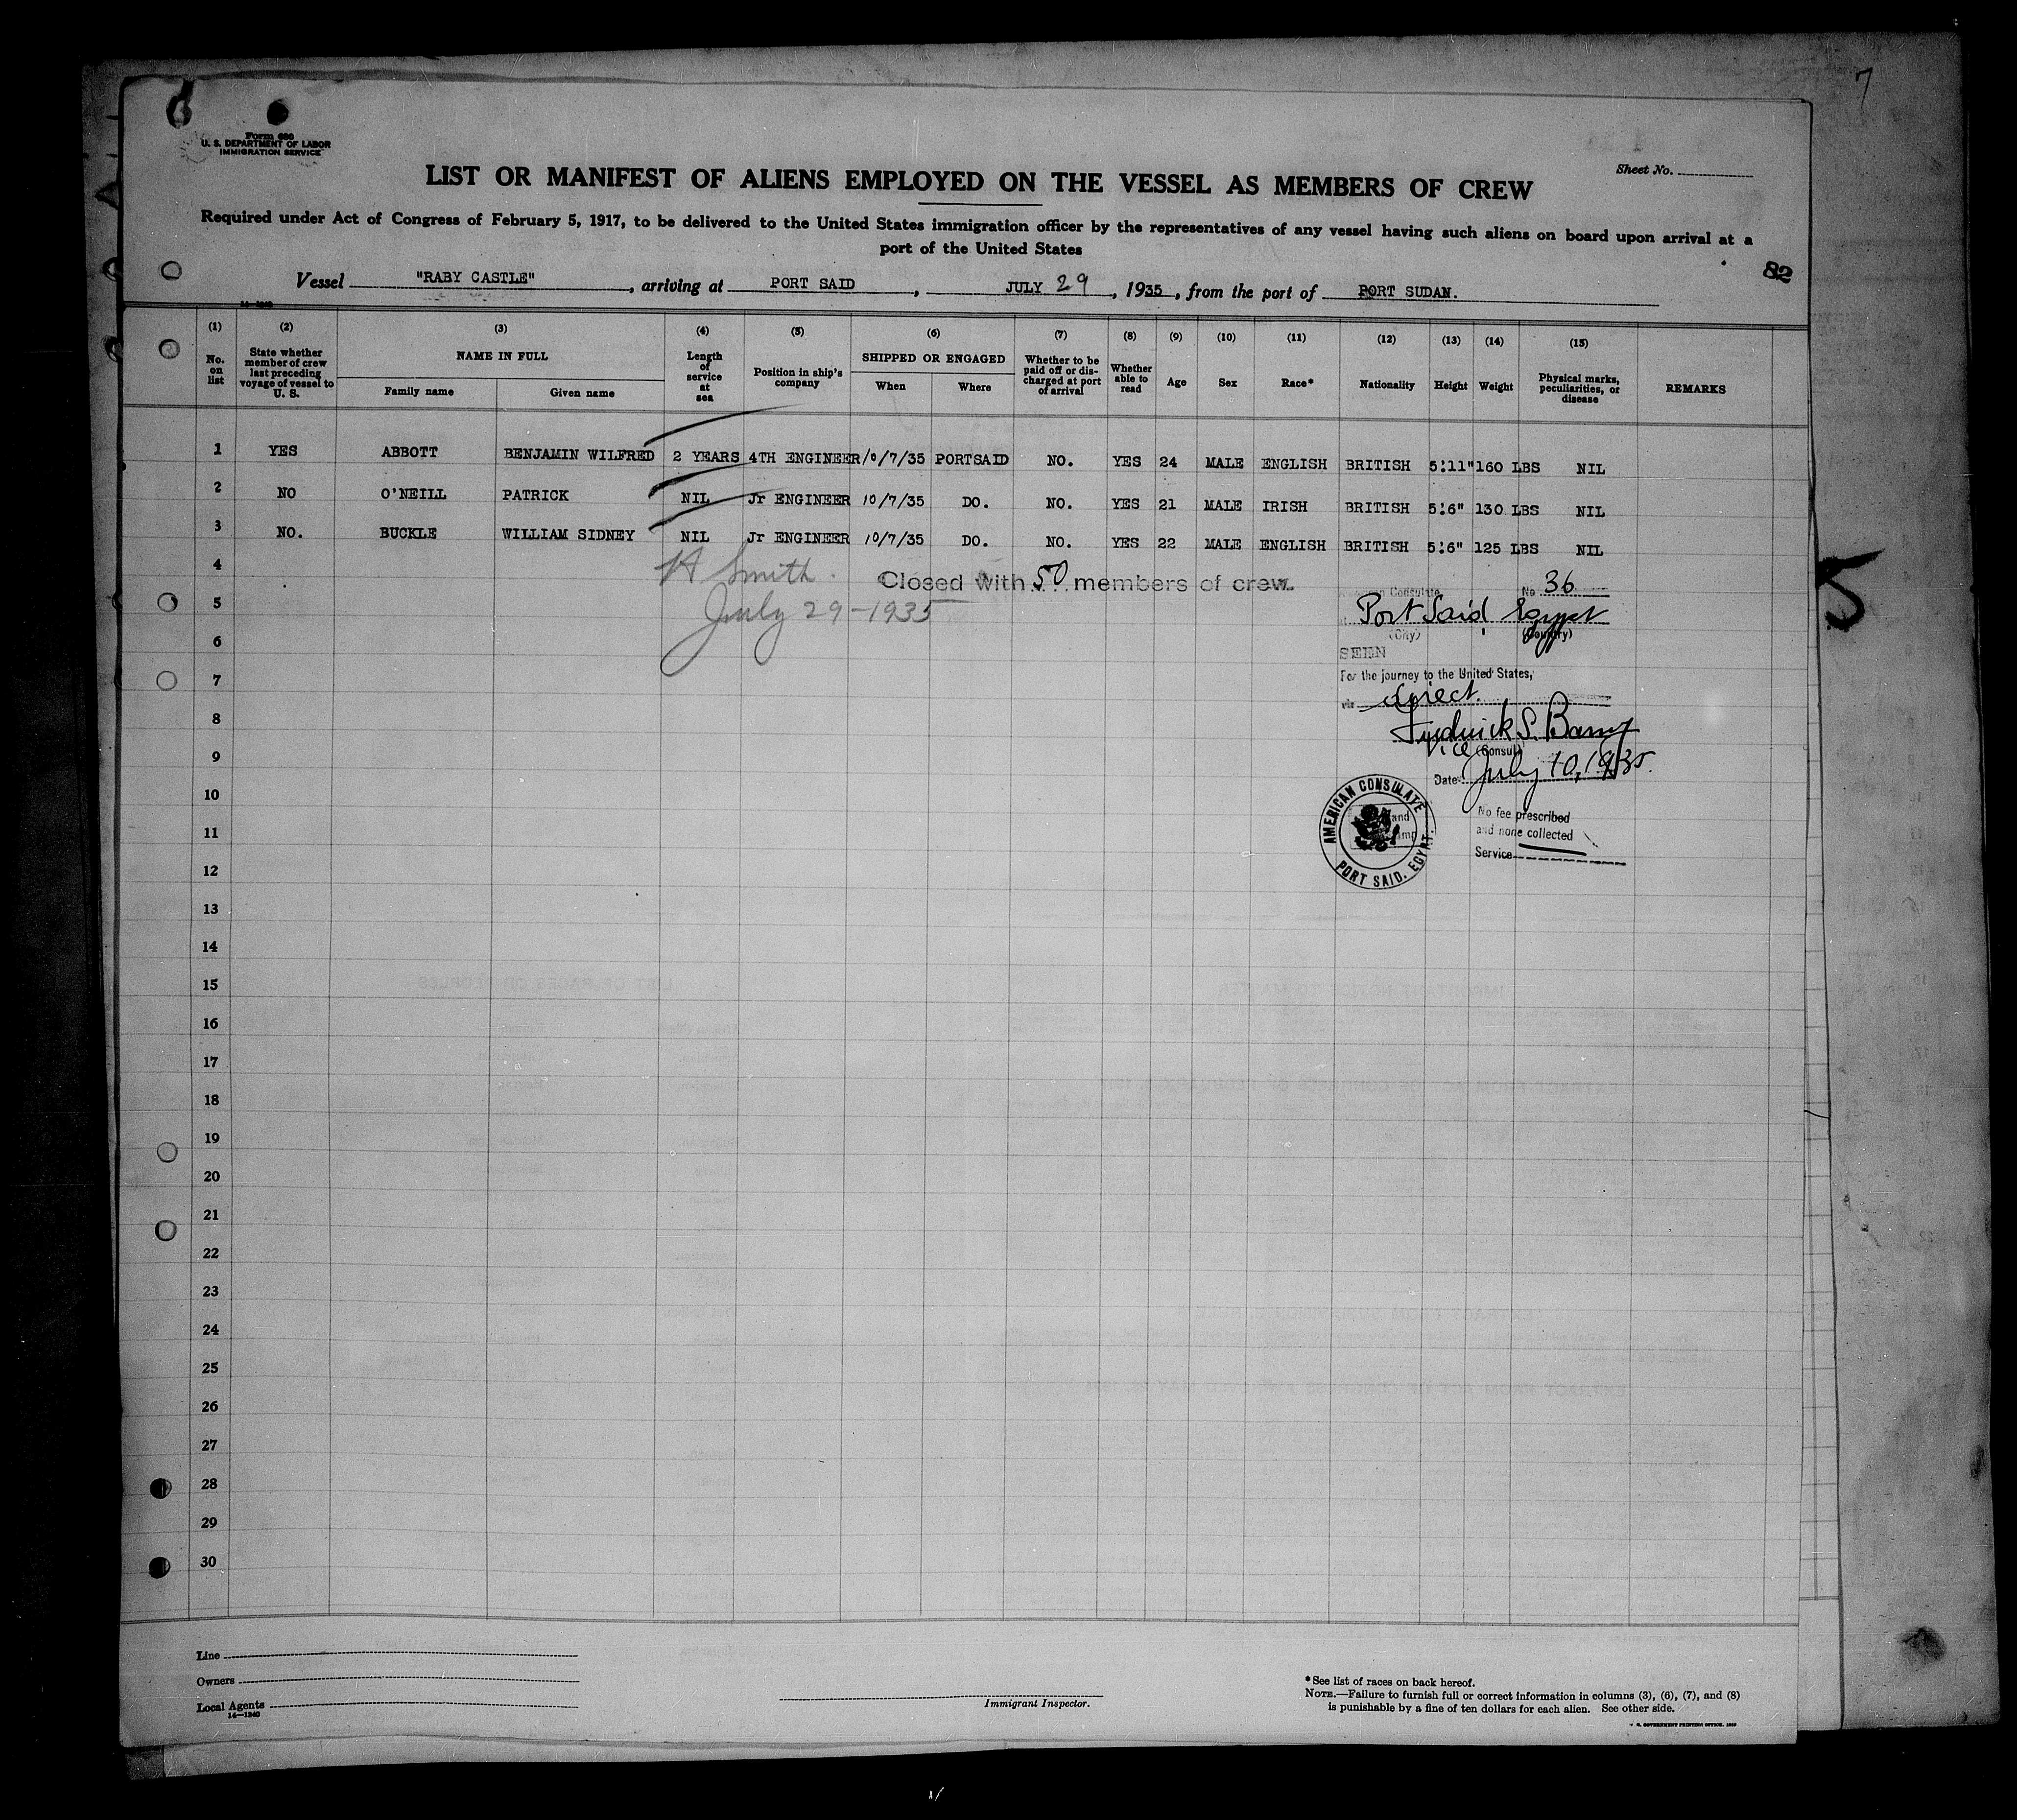 7
Form 680
U. S. DEPARTMENT OF LABOR
IMMIGRATION SERVICE
Sheet No.
LIST OR MANIFEST OF ALIENS EMPLOYED ON THE VESSEL AS MEMBERS OF CREW
Required under Act of Congress of February 5, 1917, to be delivered to the United States immigration officer by the representatives of any vessel having such aliens on board upon arrival at a
port of the United States
82
Vessel "RABY CASTLE", arriving at PORT SAID, JULY 29, 1935, from the port of PORT SUDAN.
14—1240
(1) (2) (3) (4) (5) (6) (7) (8) (9) (10) (11) (12) (13) (14) (15)
No. on list State whether member of crew last preceding voyage of vessel to U. S. NAME IN FULL Family name Given name Length of service at sea Position in ship's company SHIPPED OR ENGAGED When Where Whether to be paid off or discharged at port of arrival Whether able to read Age Sex Race* Nationality Height Weight Physical marks, peculiarities, or disease REMARKS
1 YES ABBOTT BENJAMIN WILFRED 2 YEARS 4TH ENGINEER 10/7/35 PORTSAID NO. YES 24 MALE ENGLISH BRITISH 5'11" 160 LBS NIL
2 NO O'NEILL PATRICK NIL Jr ENGINEER 10/7/35 DO. NO. YES 21 MALE IRISH BRITISH 5'6" 130 LBS NIL
3 NO. BUCKLE WILLIAM SIDNEY NIL Jr ENGINEER 10/7/35 DO. NO. YES 22 MALE ENGLISH BRITISH 5'6" 125 LBS NIL
4 Smith Closed with 50 members of crew.
July 29-1935
Consulate, No 36
Port Said Egypt
(City) (Country)
SEEN
For the journey to the United States,
via direct.
Frederick S.
Vice (Consul)
Date July 10, 1935.
AMERICAN CONSULATE
PORT SAID, EGYPT.
No fee prescribed
and none collected
Service
5
6
7
8
9
10
11
12
13
14
15
16
17
18
19
20
21
22
23
24
25
26
27
28
29
30
5
Line
Owners
Local Agents
14—1240
Immigrant Inspector.
*See list of races on back hereof.
NOTE.—Failure to furnish full or correct information in columns (3), (6), (7), and (8)
is punishable by a fine of ten dollars for each alien. See other side.
GOVERNMENT PRINTING OFFICE